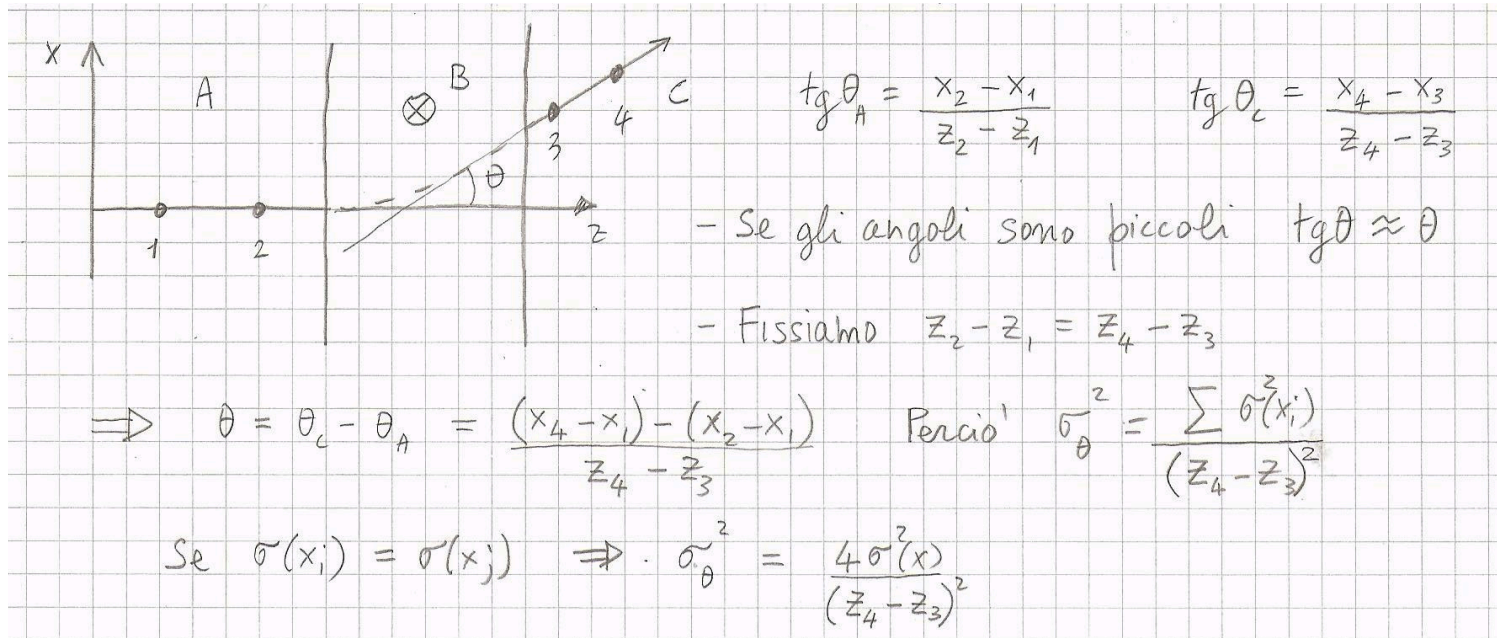 X A B C
⊗
1 2 3 4 θ z
tg θ_A = (x_2 − x_1) / (z_2 − z_1)    tg θ_c = (x_4 − x_3) / (z_4 − z_3)
- Se gli angoli sono piccoli tgθ ≈ θ
- Fissiamo z_2 − z_1 = z_4 − z_3
⇒ θ = θ_c − θ_A = ((x_4 − x_1) − (x_2 − x_1)) / (z_4 − z_3)    Perciò σ_θ^2 = Σ σ^2(x_i) / (z_4 − z_3)^2
Se σ(x_i) = σ(x_j) ⇒ σ_θ^2 = 4σ^2(x) / (z_4 − z_3)^2